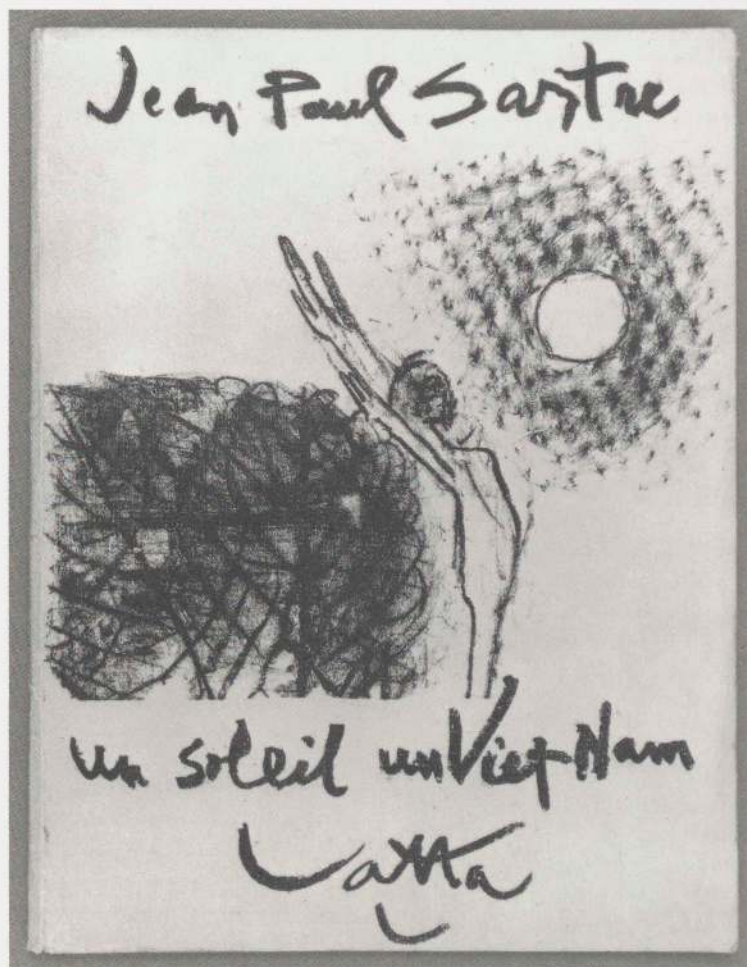 Jean Paul Sartre
un soleil un Viet-Nam